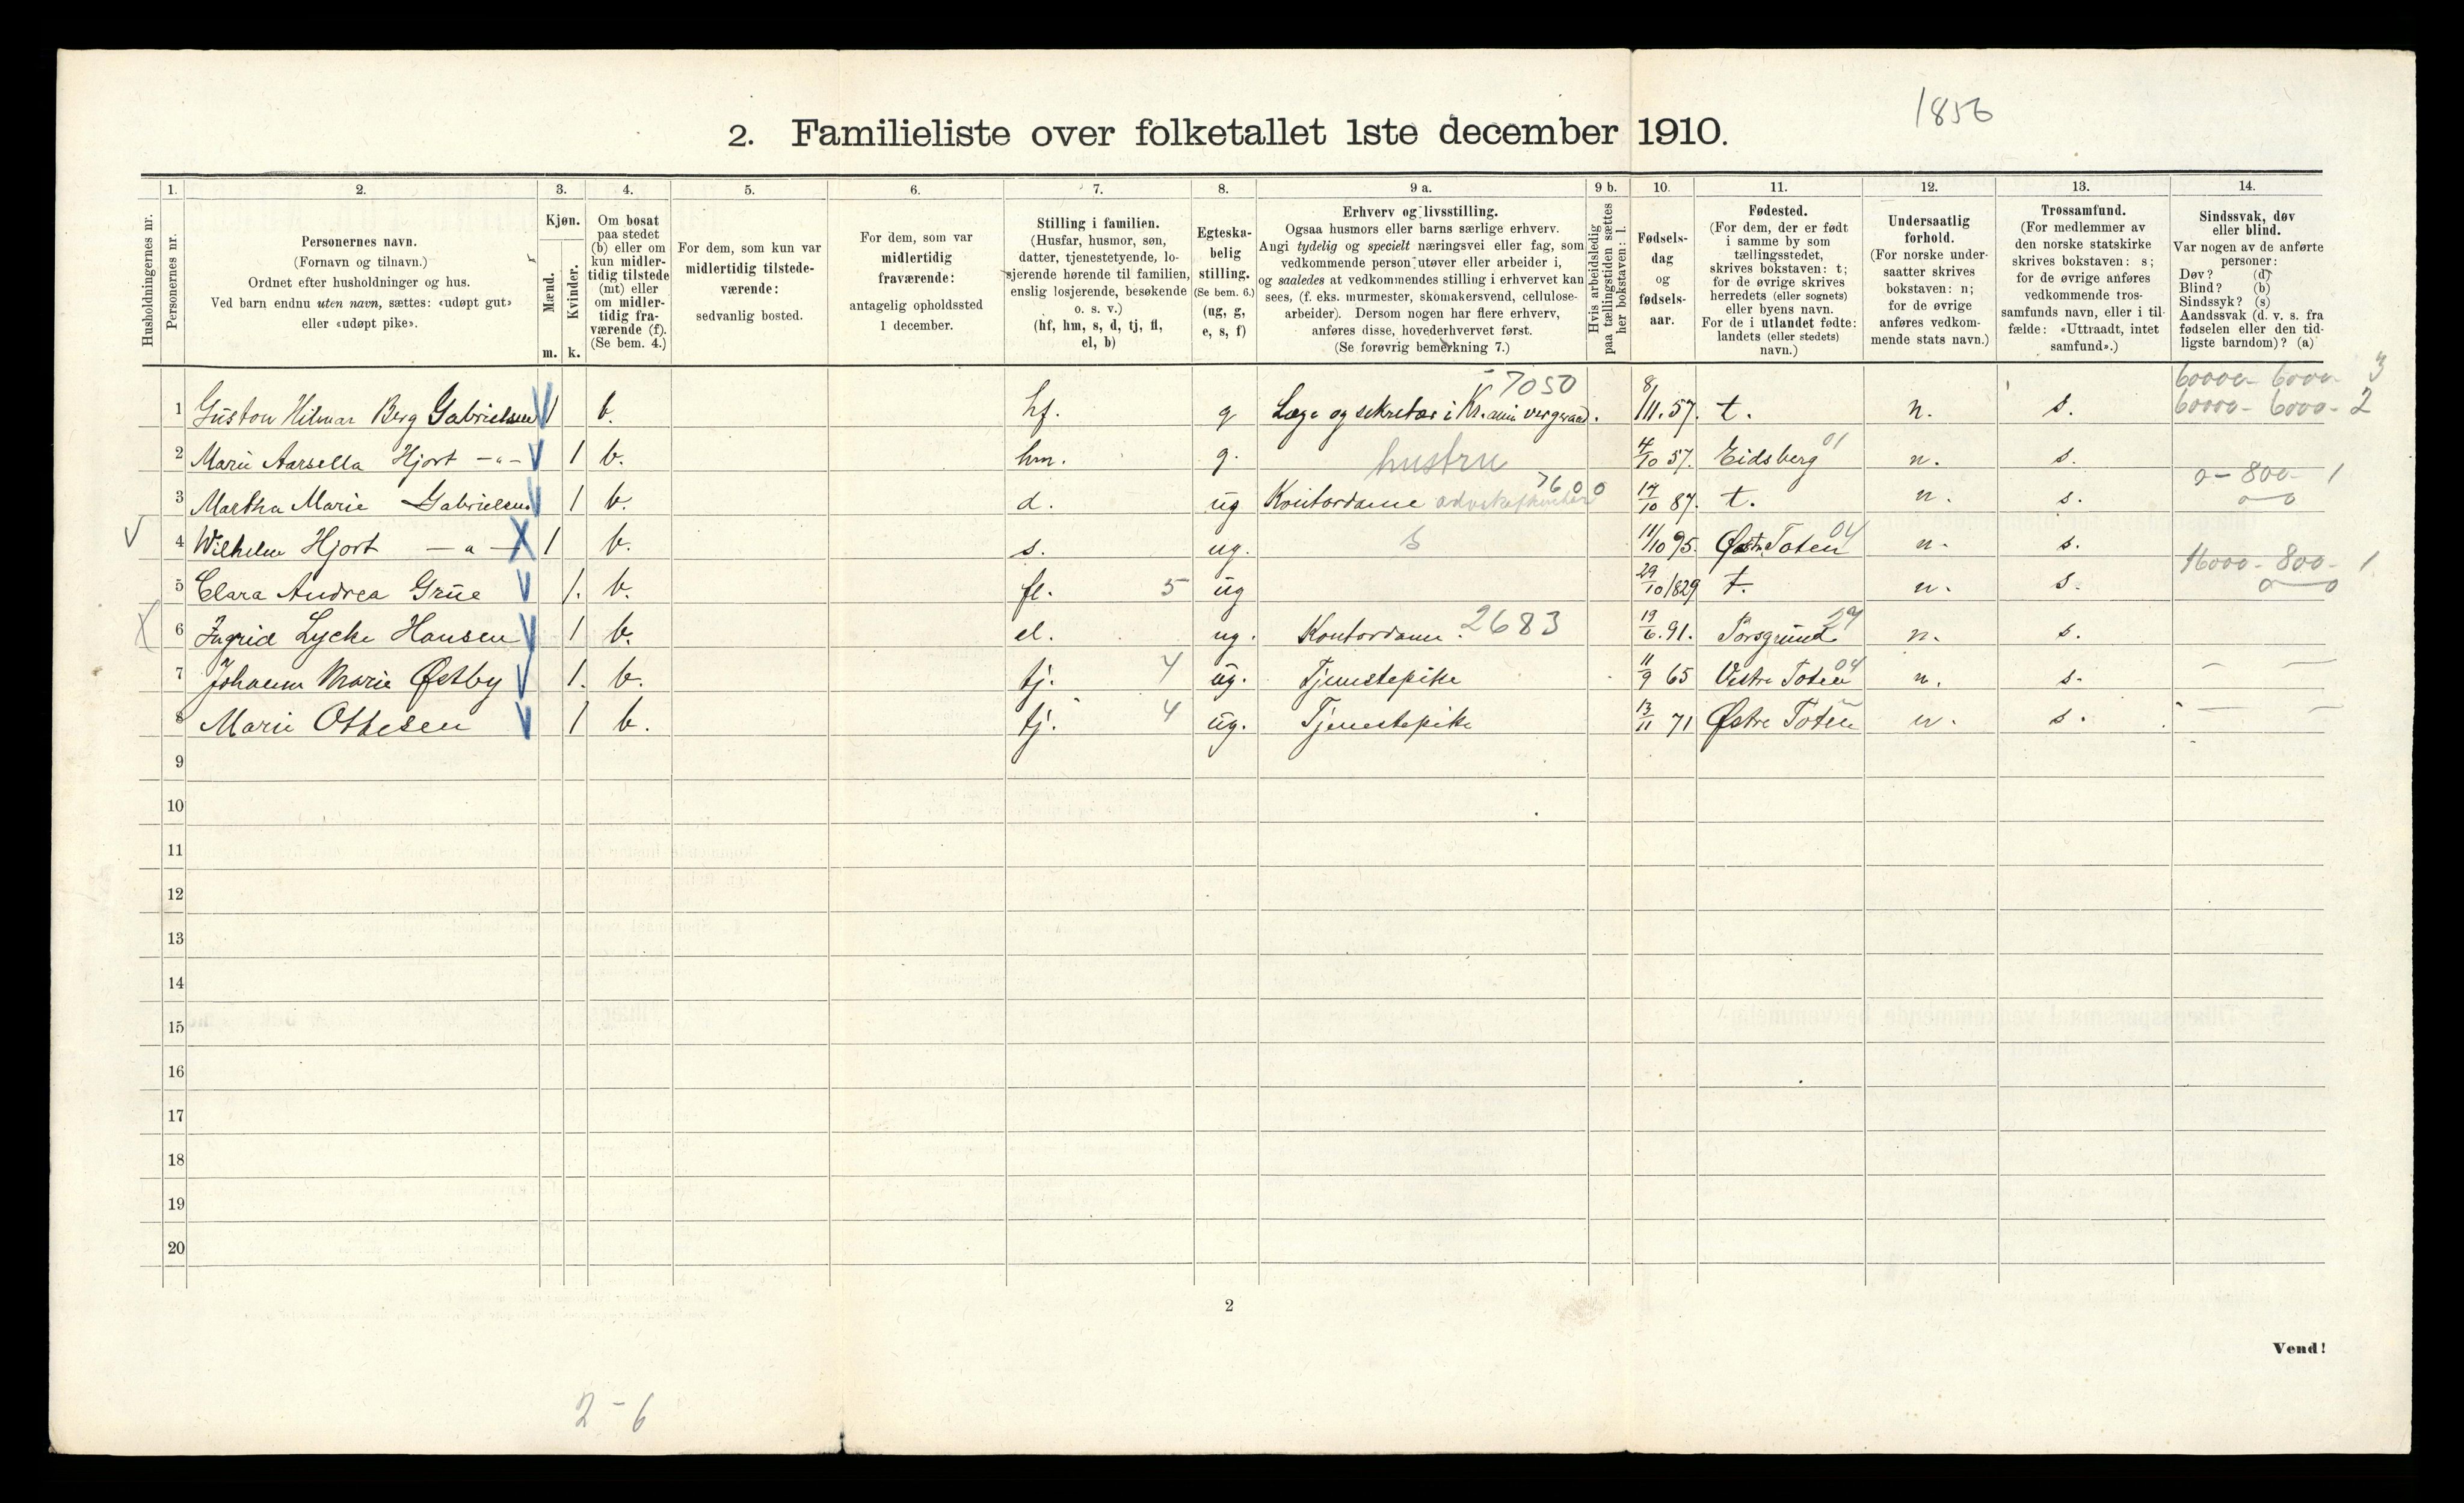 1856
2. Familieliste over folketallet 1ste december 1910.
1. 2. 3. 4. 5. 6. 7. 8. 9 a. 9 b. 10. 11. 12. 13. 14.
Husholdningernes nr.
Personernes nr.
Personernes navn.
(Fornavn og tilnavn.)
Ordnet efter husholdninger og hus.
Ved barn endnu uten navn, sættes: «udøpt gut»
eller «udøpt pike».
Kjøn.
Mænd.
Kvinder.
m. k.
Om bosat
paa stedet
(b) eller om
kun midler-
tidig tilstede
(mt) eller
om midler-
tidig fra-
værende (f).
(Se bem. 4.)
For dem, som kun var
midlertidig tilstede-
værende:
sedvanlig bosted.
For dem, som var
midlertidig
fraværende:
antagelig opholdssted
1 december.
Stilling i familien.
(Husfar, husmor, søn,
datter, tjenestetyende, lo-
sjerende hørende til familien,
enslig losjerende, besøkende
o. s. v.)
(hf, hm, s, d, tj, fl,
el, b)
Egteska-
belig
stilling.
(Se bem. 6.)
(ug, g,
e, s, f)
Erhverv og livsstilling.
Ogsaa husmors eller barns særlige erhverv.
Angi tydelig og specielt næringsvei eller fag, som
vedkommende person utøver eller arbeider i,
og saaledes at vedkommendes stilling i erhvervet kan
sees, (f. eks. murmester, skomakersvend, cellulose-
arbeider). Dersom nogen har flere erhverv,
anføres disse, hovederhvervet først.
(Se forøvrig bemerkning 7.)
Hvis arbeidsledig
paa tællingstiden sættes
her bokstaven: l.
Fødsels-
dag
og
fødsels-
aar.
Fødested.
(For dem, der er født
i samme by som
tællingsstedet,
skrives bokstaven: t;
for de øvrige skrives
herredets (eller sognets)
eller byens navn.
For de i utlandet fødte:
landets (eller stedets)
navn.)
Undersaatlig
forhold.
(For norske under-
saatter skrives
bokstaven: n;
for de øvrige
anføres vedkom-
mende stats navn.)
Trossamfund.
(For medlemmer av
den norske statskirke
skrives bokstaven: s;
for de øvrige anføres
vedkommende tros-
samfunds navn, eller i til-
fælde: «Uttraadt, intet
samfund».)
Sindssvak, døv
eller blind.
Var nogen av de anførte
personer:
Døv? (d)
Blind? (b)
Sindssyk? (s)
Aandssvak (d. v. s. fra
fødselen eller den tid-
ligste barndom)? (a)
7050 60000- 6000- 3
1 Gustav Hilmar Berg Gabrielsen 1 b. hf. g Læge og sekretær i 8/11.57. t. n. s. 60000- 6000- 2
2 Marie Hjort -"- 1 b. hm. g. hustru 4/10 57. Eidsberg 01 n. s.
7600 0- 800- 1
3 Martha Marie Gabrielsen 1 b. d. ug Kontordame 17/10 87. t. n. s. 0 0
4 Wilhelm Hjort -"- 1 b. s. ug. s 11/10 95. Østr. Toten 04 n. s.
16000- 800- 1
5 Clara Andrea Grüe 1. b. fl. 5 ug 29/10 1829 t. n. s. 0 0
6 Ingrid Lycke Hansen 1 b. el. ug. Kontordame. 2683 19/6.91. Porsgrund n. s.
7 Johanne Marie Østby 1. b. tj. 4 ug. Tjenestepike 11/9 65 Vestre Toten 04 n. s.
8 Marie Ottesen 1 b. tj. 4 ug. Tjenestepike 13/11 71 Østre Toten n. s.
9
10
11
12
13
14
15
16
17
18
19
20
2
Vend!
2-6